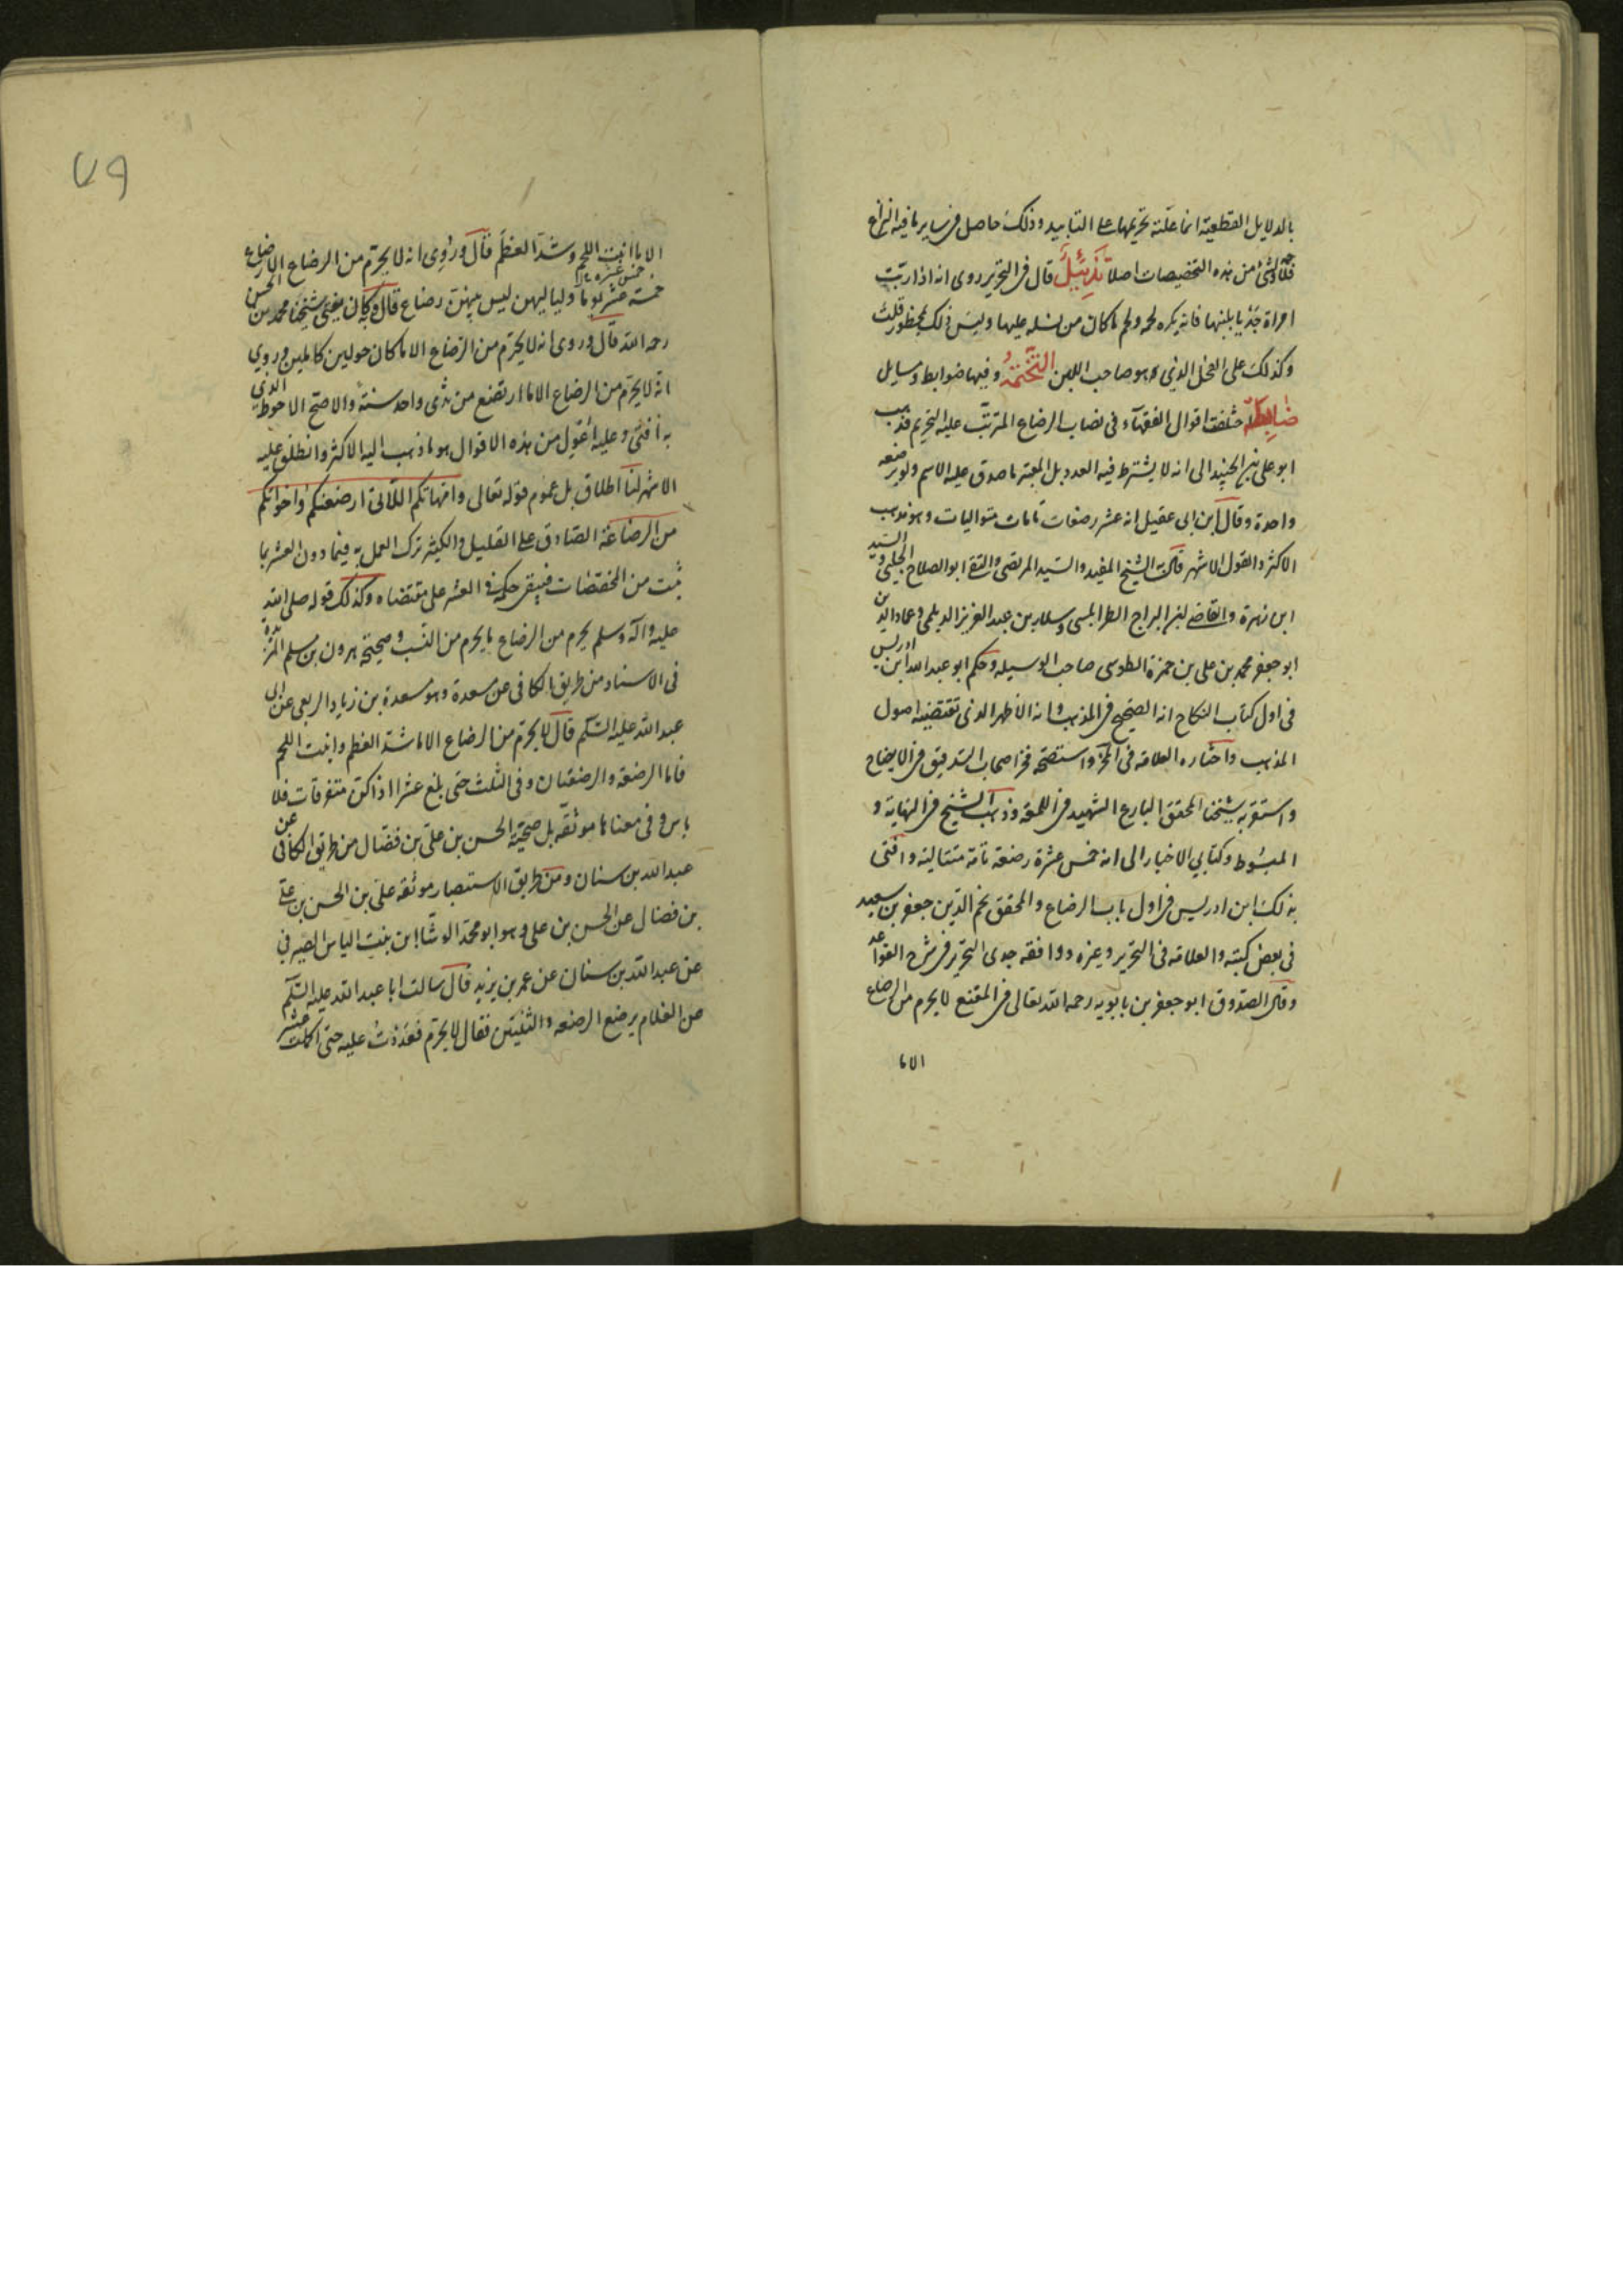 بالدلايل القطعية انما علته تحريمها على التابيد وذلك حاصل في ساير ما فيه النزاع
فلا وجه لشئ من هذه التخصيصات اصلا تذييل قال في التحرير روى انه اذا ربت
امراة جديا بلبنها فانه يكره لحمه ولحم ما كان من نسله عليها وليس ذلك بمحظور قلت
وكذلك على الفحل الذي هو صاحب اللبن التختمة وفيها ضوابط ومسايل
ضابطة اختلفت اقوال الفقهاء في نصاب الرضاع المترتب عليه التحريم فذهب
ابو على بن الجنيد الى انه لا يشترط فيه العدد بل المعتبر ما صدق عليه الاسم ولو برضعه
واحدة وقال ابن ابى عقيل انه عشر رضعات تامات متواليات وهو مذهب
الاكثر والقول الاشهر قاله الشيخ المفيد والسيد المرتضى والتقى ابو الصلاح الحلبى والسيد
ابن زهرة والقاضى ابن البراج الطرابلسى وسلار بن عبد العزيز الديلمى وعماد الدين
ابو جعفر محمد بن على بن حمزة الطوسى صاحب الوسيله وحكم ابو عبد الله ابن ادريس
فى اول كتاب النكاح انه الصحيح في المذهب وانه الاظهر الذى تقتضيه اصول
المذهب واختاره العلامه فى المخ واستصحه فخر اصحاب التدقيق في الايضاح
واستقر به شيخنا المحقق البارع الشهيد في اللمعه وذهب الشيخ في النهاية و
المبسوط وكتابي الاخبار الى انه خمس عشرة رضعة تامة متتالية وافتى
بذلك ابن ادريس في اول باب الرضاع والمحقق نجم الدين جعفر بن سعيد
فى بعض كتبه والعلامه فى التحرير وغيره ووافقه جدى التحرير في شرح القواعد
وقال الصدوق ابو جعفر بن بابويه رحمه الله تعالى في المقنع لا يحرم من الرضاع
الا ما
٧٩
الا ما انبت اللحم وشد العظم قال وروى انه لا يحرم من الرضاع الا رضاع
خمسة عشر يوما وليا ليهن ليس بينهن رضاع قال وبه كان يفتى شيخنا محمد بن الحسن
رحمه الله قال وروى انه لا يحرم من الرضاع الا ما كان حولين كاملين وروي
انه لا يحرم من الرضاع الا ما ارتضع من ثدى واحد سنة والاصح الاحوط الذي
به افتى وعليه اعول من هذه الاقوال هو ما ذهب اليه الاكثر وانطلق عليه
الاشهر لنا اطلاق بل عموم قوله تعالى وامهاتكم اللآتي ارضعنكم واخواتكم
من الرضاعة الصادق على القليل والكثير ترك العمل به فيما دون العشر بما
ثبت من المخصصات فيبقى حكمه في العشر على مقتضاه وكذلك قوله صلى الله
عليه وآله وسلم يحرم من الرضاع ما يحرم من النسب وصحيحة هرون بن مسلم
فى الاسناد من طريق الكافى عن مسعدة وهو مسعدة بن زياد الربعى عن ابى
عبد الله عليه السلام قال لا يحرم من الرضاع الا ما شد العظم وانبت اللحم
فاما الرضعة والرضعتان وفى الثلث حتى بلغ عشرا اذا كن متفرقات فلا
باس وفى معناها موثقه بل صحيحة الحسن بن على بن فضال من طريق الكافى عن
عبد الله بن سنان ومن طريق الاستبصار موثقه على بن الحسن بن على
بن فضال عن الحسن بن على وهو ابو محمد الوشا ابن بنت الياس الصيرفى
عن عبد الله بن سنان عن عمر بن يزيد قال سالت ابا عبد الله عليه السلام
عن الغلام يرضع الرضعه والثنيتين فقال لا يحرم فعددت عليه حتى اكملت عشر